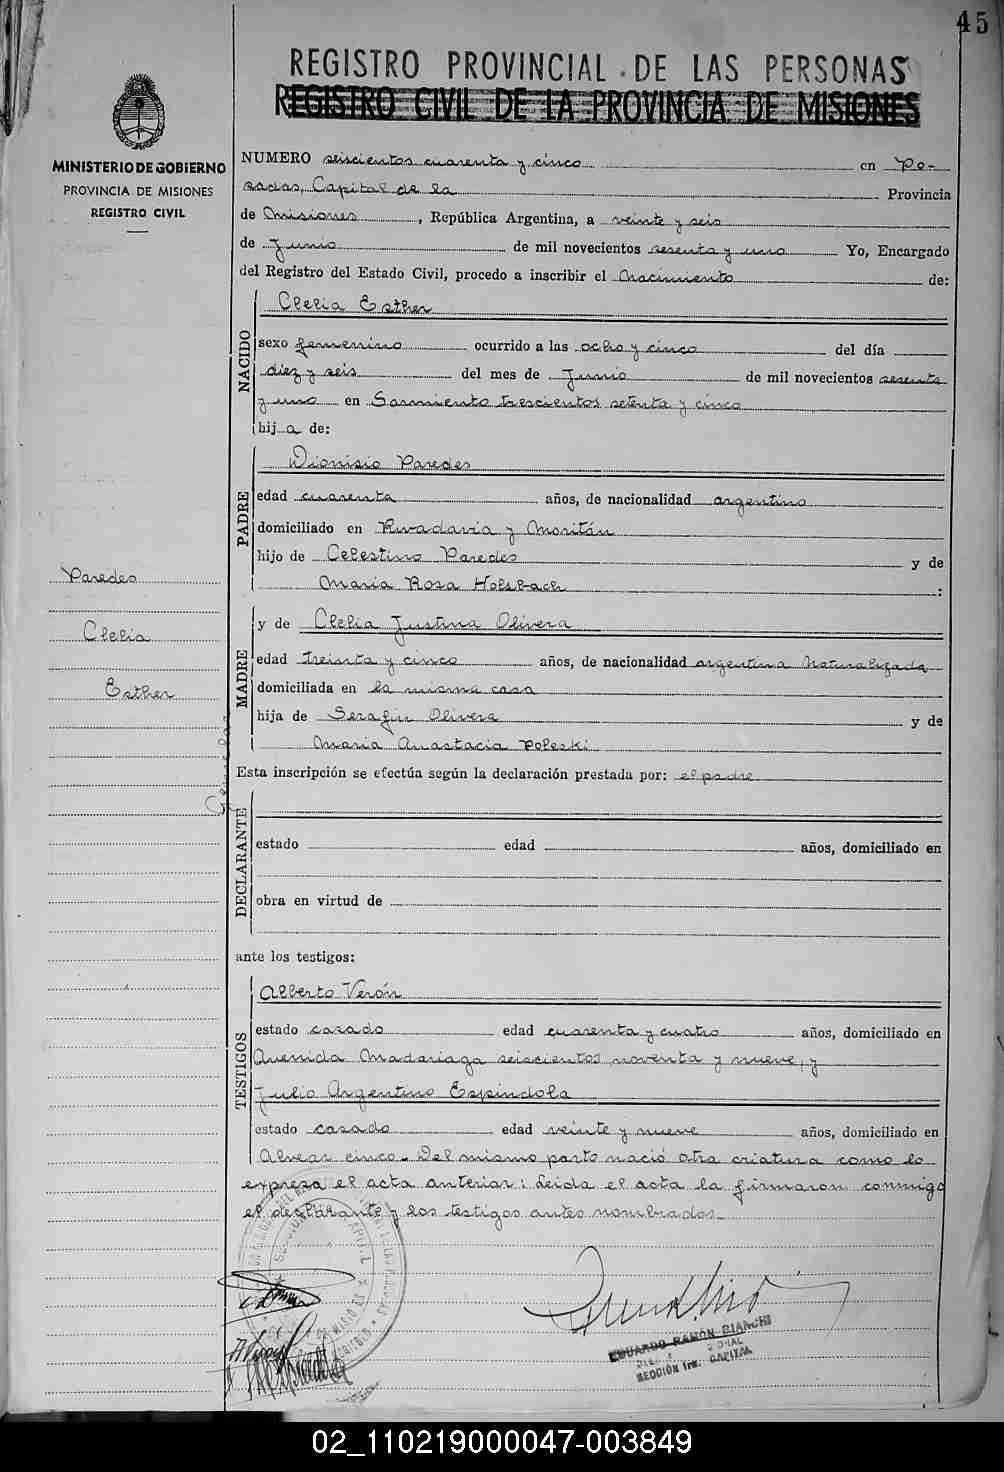 45
REGISTRO PROVINCIAL DE LAS PERSONAS
REGISTRO CIVIL DE LA PROVINCIA DE MISIONES
MINISTERIO DE GOBIERNO
PROVINCIA DE MISIONES
REGISTRO CIVIL
NUMERO seiscientos cuarenta y cinco en Po-
sadas, Capital de la Provincia
de Misiones, República Argentina, a veinte y seis
de Junio de mil novecientos sesenta y uno Yo, Encargado
del Registro del Estado Civil, procedo a inscribir el Nacimiento de:
NACIDO
Clelia Esther
sexo femenino ocurrido a las ocho y cinco del día
diez y seis del mes de Junio de mil novecientos sesenta
y uno en Sarmiento trescientos setenta y cinco
hij a de:
PADRE
Dionisio Paredes
edad cuarenta años, de nacionalidad argentino
domiciliado en Rivadavia y Moritán
hijo de Celestino Paredes y de
Maria Rosa Holsbach :
Paredes
Clelia
Esther
MADRE
y de Clelia Justina Olivera
edad treinta y cinco años, de nacionalidad argentina Naturalizada
domiciliada en la misma casa
hija de Serafin Olivera y de
Maria Anastacia Poleski
Esta inscripción se efectúa según la declaración prestada por: el padre
DECLARANTE
estado edad años, domiciliado en
obra en virtud de
ante los testigos:
TESTIGOS
Alberto Verón
estado casado edad cuarenta y cuatro años, domiciliado en
Avenida Madariaga seiscientos noventa y nueve, y
Julio Argentino Espindola
estado casado edad veinte y nueve años, domiciliado en
Alvear cinco. Del mismo parto nació otra criatura como lo
expresa el acta anterior: Leida el acta la firmaron conmigo
el declarante y los testigos antes nombrados.
EDUARDO RAMÓN BIANCHI
SECCIÓN 1ra. CAPITAL
02_110219000047-003849